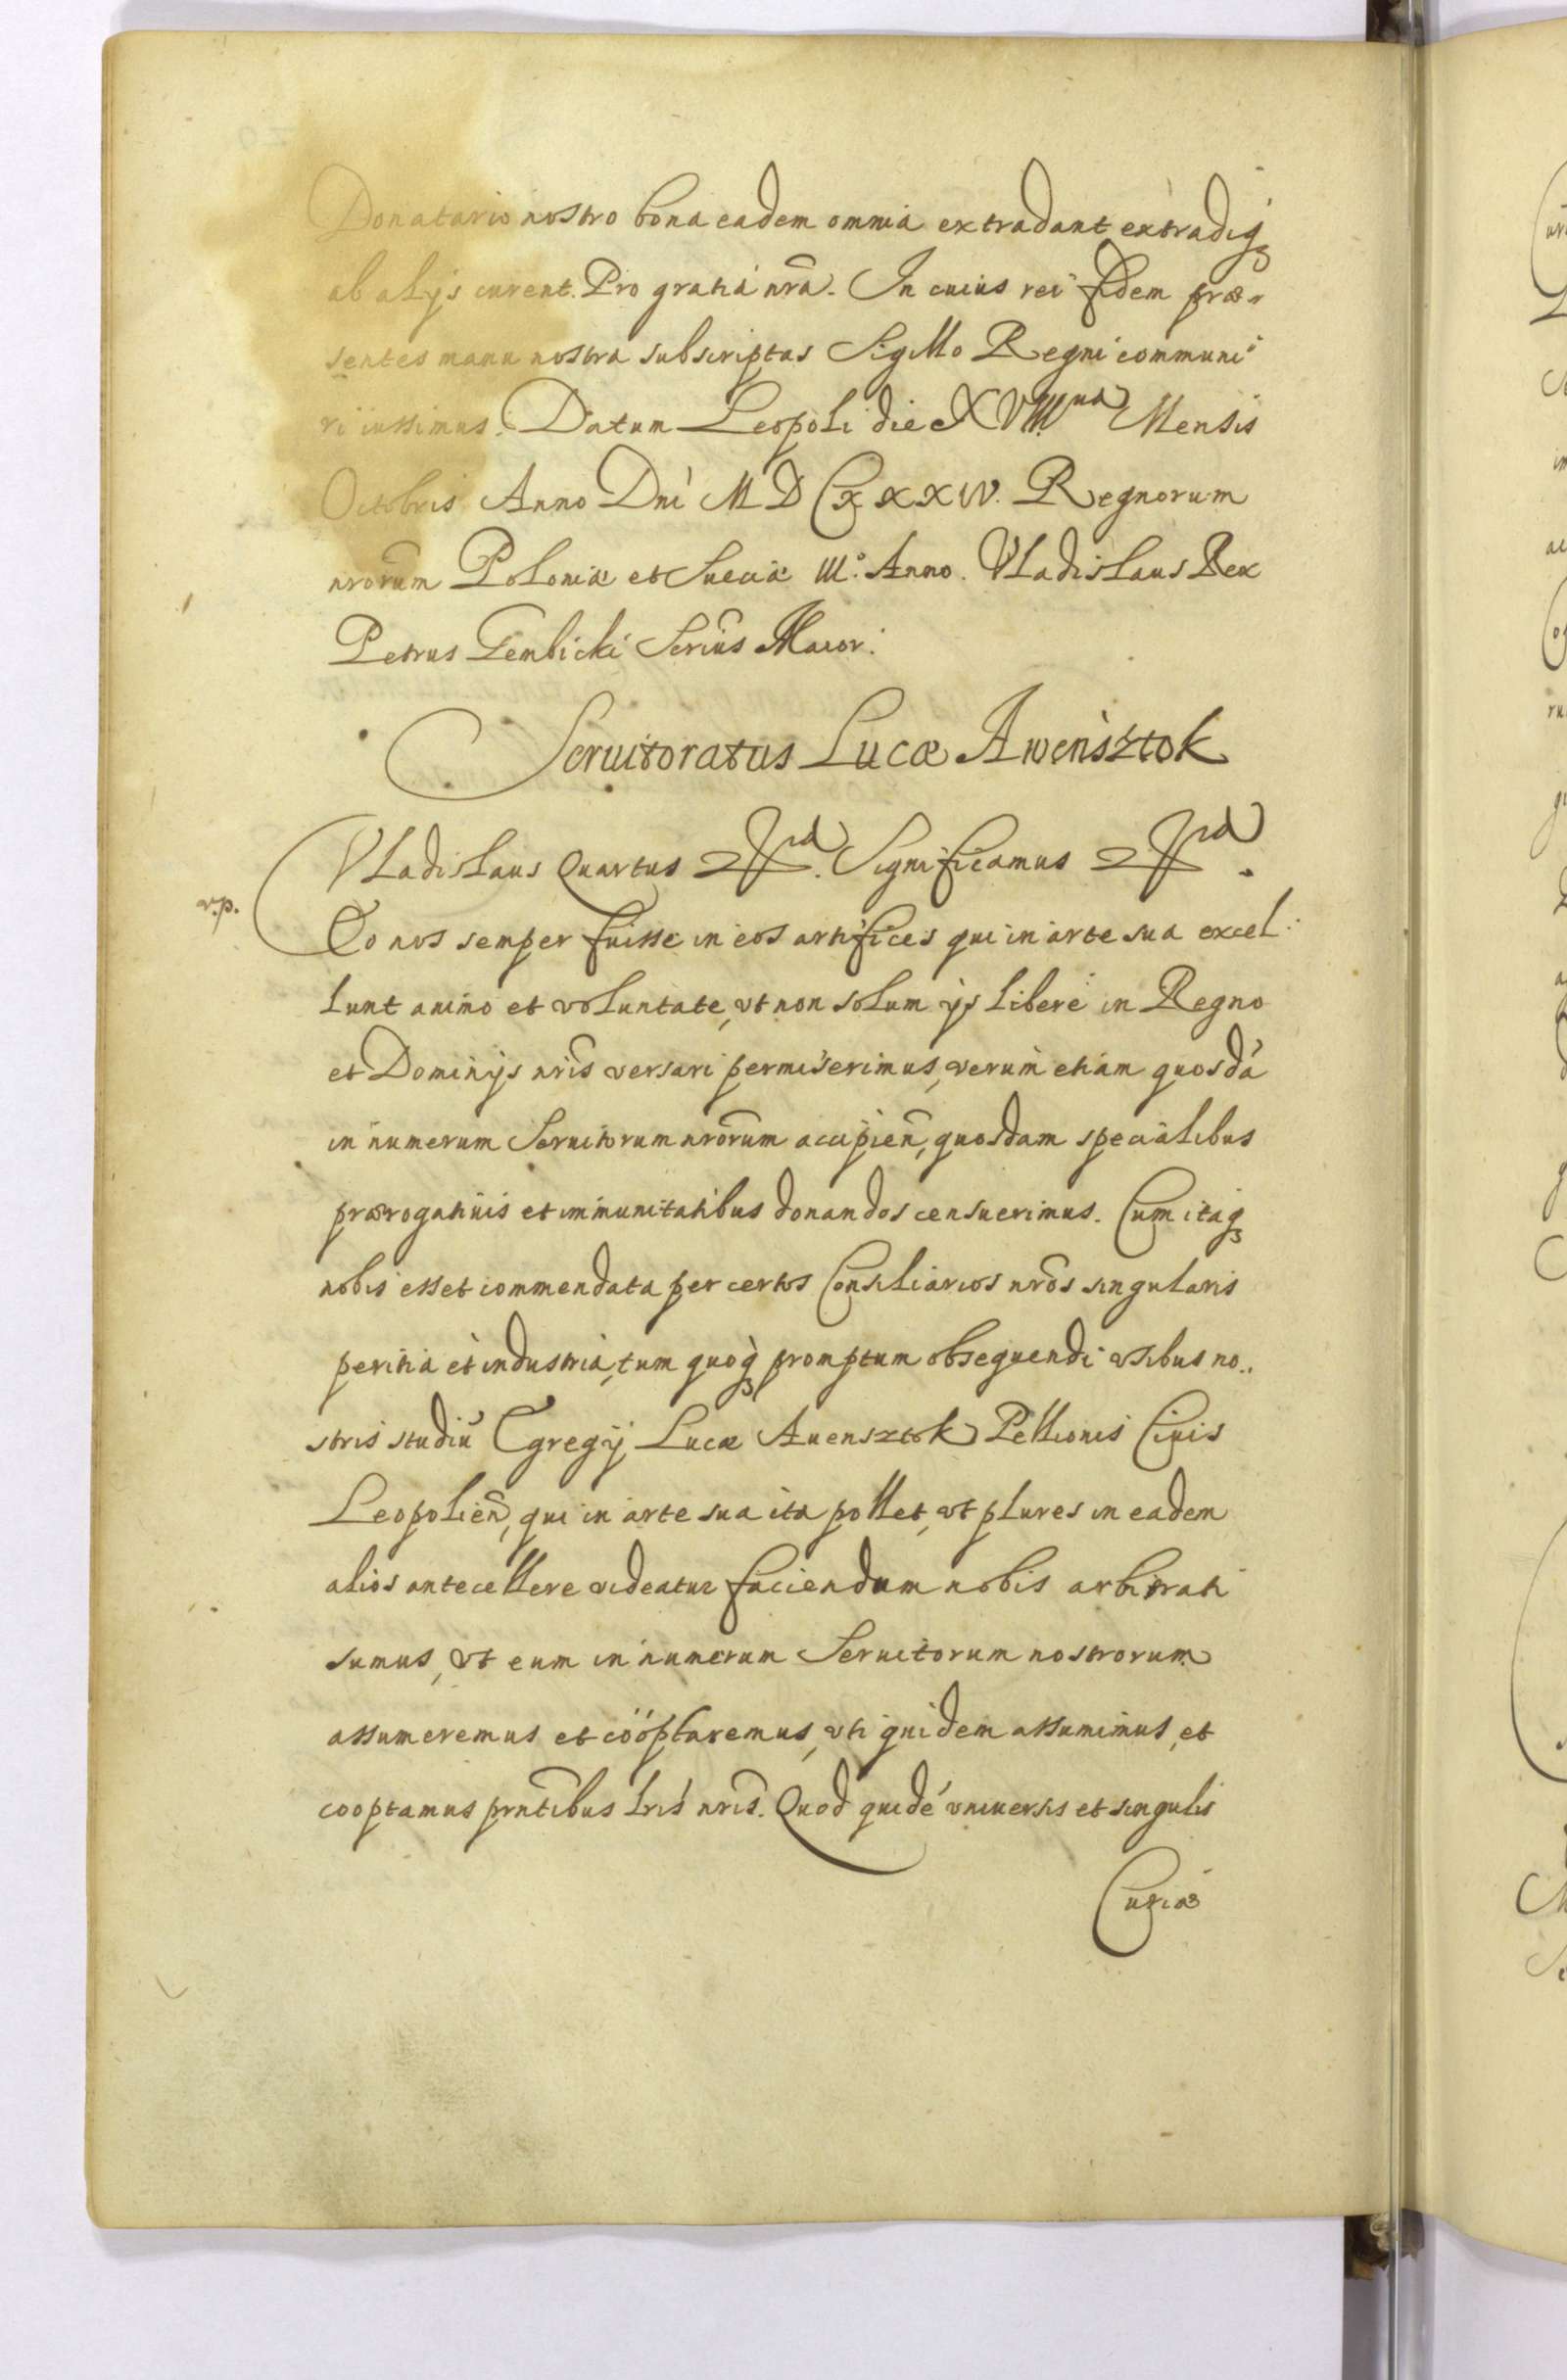 Donatario nostro bona eadem omnia extradant extradiq3
ab alijs curent. Pro gratia nrã. In cuius rei fidem præ-
sentes manu nostra subscriptas Sigillo Regni communi
ri iussimus. Datum Leopoli die XVIII.na Mensis
Octobris Anno Dni MDCXXXIV. Regnorum
nrorum Poloniæ et Sueciæ III.º Anno. Vladislaus Rex
Petrus Gembicki Scrius Maior.
Seruitoratus Lucæ Awensztok
Vladislaus Quartus Significamus
v.p.
Eo nos semper fuisse in eos artifices qui in arte sua excel:
lunt animo et voluntate, vt non solum ijs liberè in Regno
et Dominijs nris versari permiserimus, verum etiam quosdá
in numerum Seruitorum nrorum accipien, quosdam specialibus
prærogatiuis et immunitatibus donandos censuerimus. Cum itaq3
nobis esset commendata per certos Consiliarios nros singularis
peritia et industria, tum quoq3 promptum obsequendi vsibus no..
stris studiũ Egregij Lucæ Auensztok Pellionis Ciuis
Leopolien, qui in arte sua ita pollet, vt plures in eadem
alios antecellere videatur faciendum nobis arbitrati
sumus, vt eum in numerum Seruitorum nostrorum
assumeremus et cööptaremus, vti quidem assumimus, et
cooptamus prntibus lris nris. Quod quidé vniuersis et singulis
Curiæ